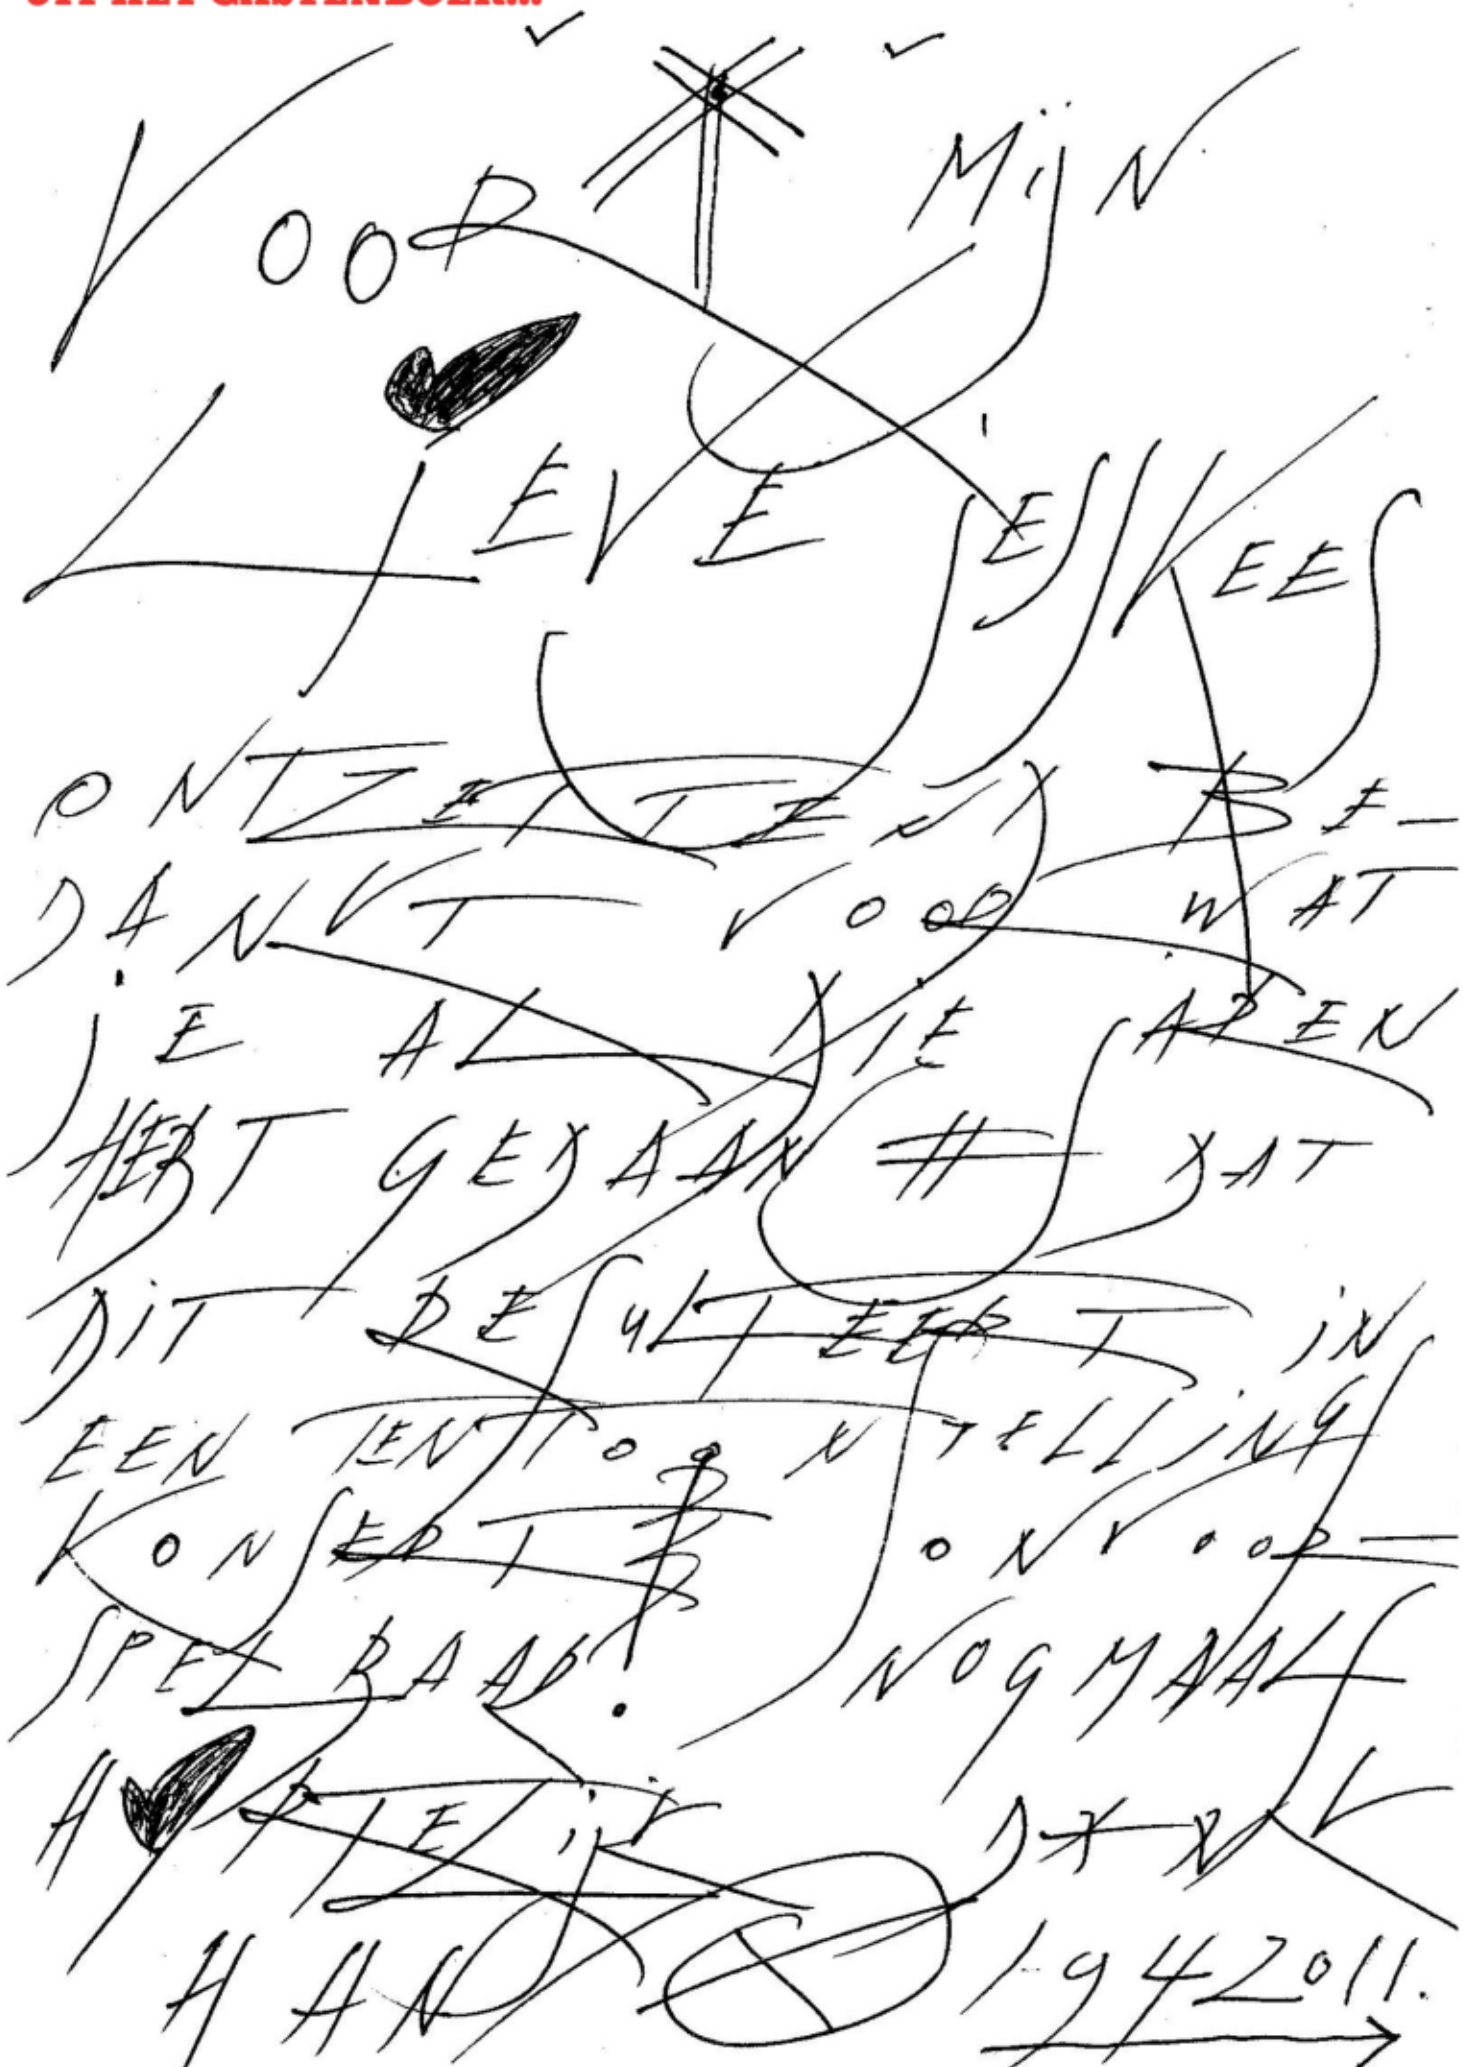 UIT HET GASTENBOEK...
VOOR MIJN
LIEVE JESJKEES
ONTZETTEND BE-
DANKT VOOR WAT
JE AL DIE JAREN
HEBT GEDAAN DAT
DIT RESULTEERT IN
EEN TENTOONSTELLING
KONSERT ONVOOR-
SPELBAAR! NOGMAALS
HARTELIJK DANK
HAN 1942011.